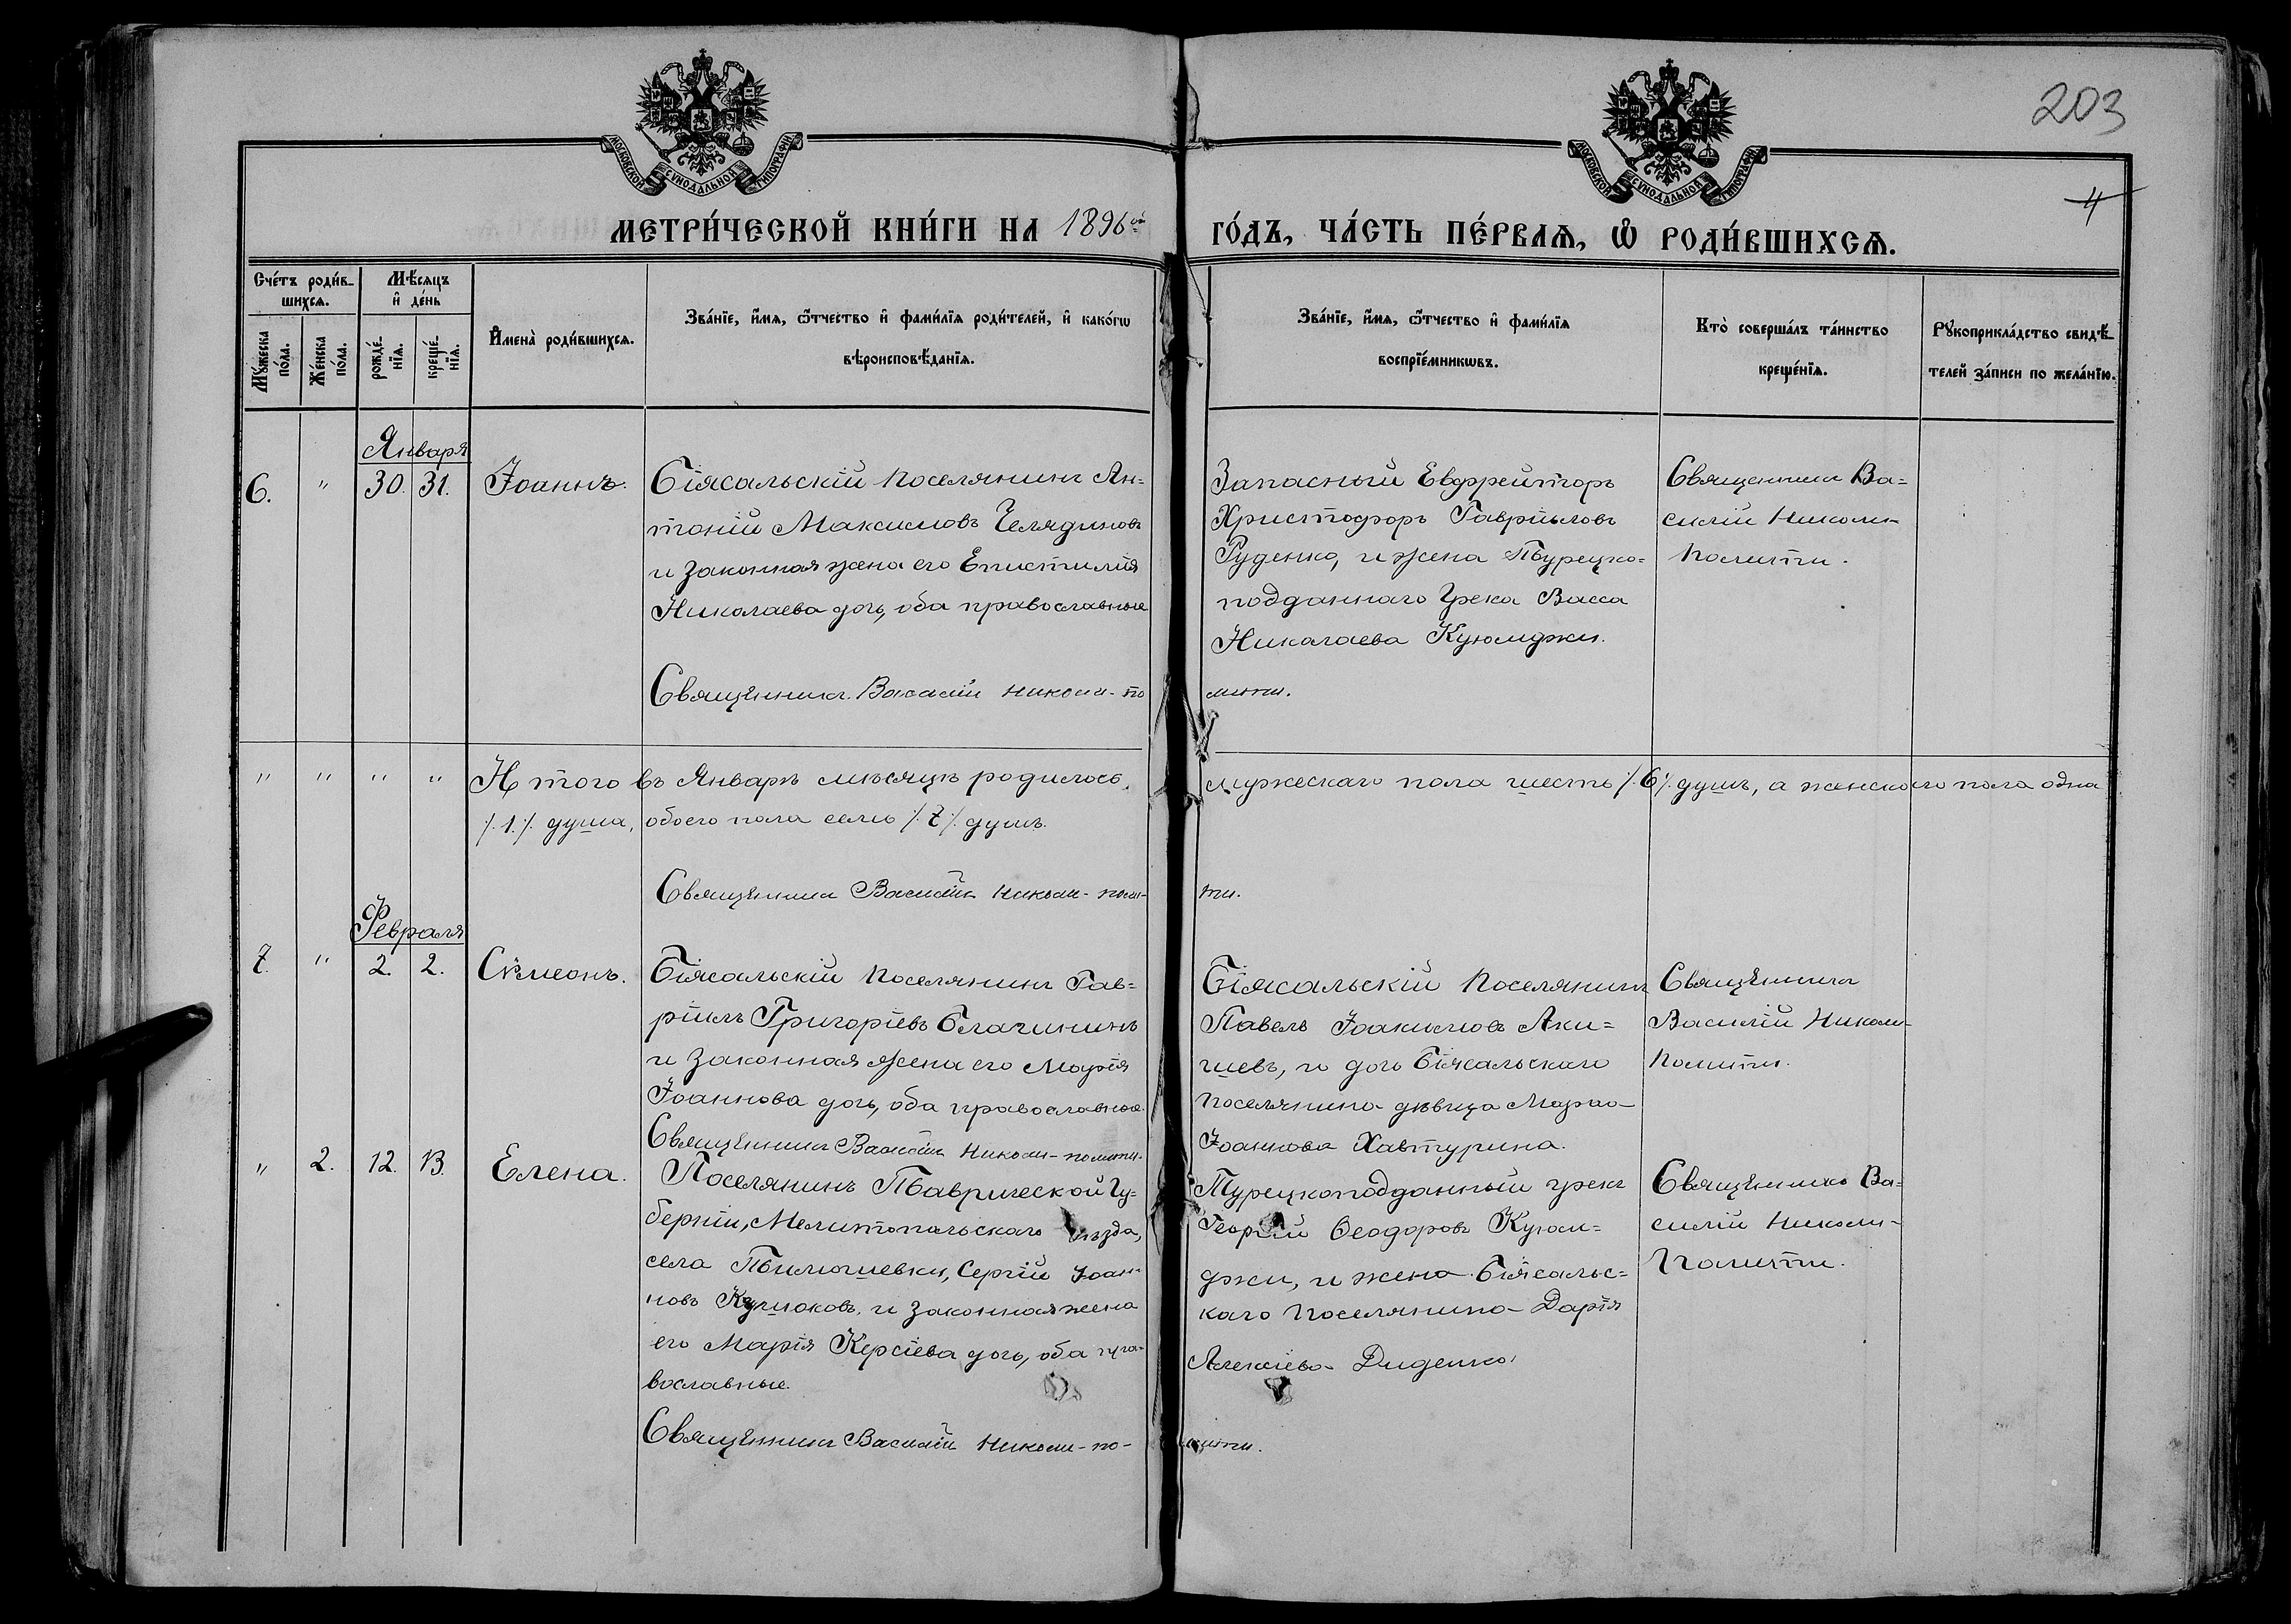 203
4
МОСКОВСКОЙ СѴНОДАЛЬНОЙ ТИПОГРАФІИ
МОСКОВСКОЙ СѴНОДАЛЬНОЙ ТИПОГРАФІИ
МЕТРИ́ЧЕСКОЙ КНИ́ГИ НА 1896ой ГО́ДЪ, ЧА́СТЬ ПЕ́РВАѦ, Ѽ РОДИ́ВШИХСѦ.
Сче́тъ роди́в-
шихсѧ.
Мꙋ́жеска
по́ла.
Же́нска
по́ла.
Мѣ́сѧцъ
и҆ де́нь
рожде́-
нїѧ.
креще́-
нїѧ.
И҆мена̀ роди́вшихсѧ.
Зва́нїе, и҆́мѧ, ѻ҆́тчество и҆ фами́лїѧ роди́телей, и҆ како́гѡ
вѣроисповѣ́данїѧ.
Зва́нїе, и҆́мѧ, ѻ҆́тчество и҆ фами́лїѧ
воспрїе́мникѡвъ.
Кто̀ соверша́лъ та́инство
креще́нїѧ.
Рꙋкоприкла́дство свидѣ́-
телей за́писи по жела́нїю.
Января
6. " 30. 31. Іоаннъ.
Біясальскій поселянинъ Ан=
тоній Максимовъ Челядиновъ
и законная жена его Епистимія
Николаева дочь, оба православные
Священникъ Василій Николи-по
лити.
Запасный Евфрейторъ
Христофоръ Гавріиловъ
Руденко, и жена Турецко=
подданнаго Грека Васса
Николаева Куюмджи.
Священникъ Ва=
силій Николи-
Полити.
" " " " Итого въ Январѣ мѣсяцѣ родилось мужескаго пола шесть /.6/. душъ, а женскаго пола одна
/.1./. душа, обоего пола семь /.7/. душъ.
Священникъ Василій Николи-поли-
ти.
Февраля
7. " 2. 2. Сѵмеонъ.
Біясальскій поселянинъ Гав=
ріилъ Григоріевъ Благининъ
и законная жена его Марія
Іоаннова дочь, оба православные.
Священникъ Василій Николи-полити.
Біясальскій поселянинъ
Павелъ Іоакимовъ Аки=
шевъ, и дочь Біясальскаго
поселянина дѣвица Марѳа
Іоаннова Хавтурина.
Священникъ
Василій Николи-
Полити.
" 2. 12. 13. Елена.
Поселянинъ Таврической Гу=
берніи, Мелитопольскаго уѣзда,
села Тимошевки, Сергій Іоан-
новъ и законная жена
его Марія дочь, оба пра-
вославные.
Священникъ Василій Николи-по-
лити.
Турецкоподданный грекъ
Георгій Ѳеодоровъ Куюм=
джи, и жена Біясальс=
каго поселянина Дарія
Алексіева Диденко
Священникъ Ва=
силій Николи-
Полити.